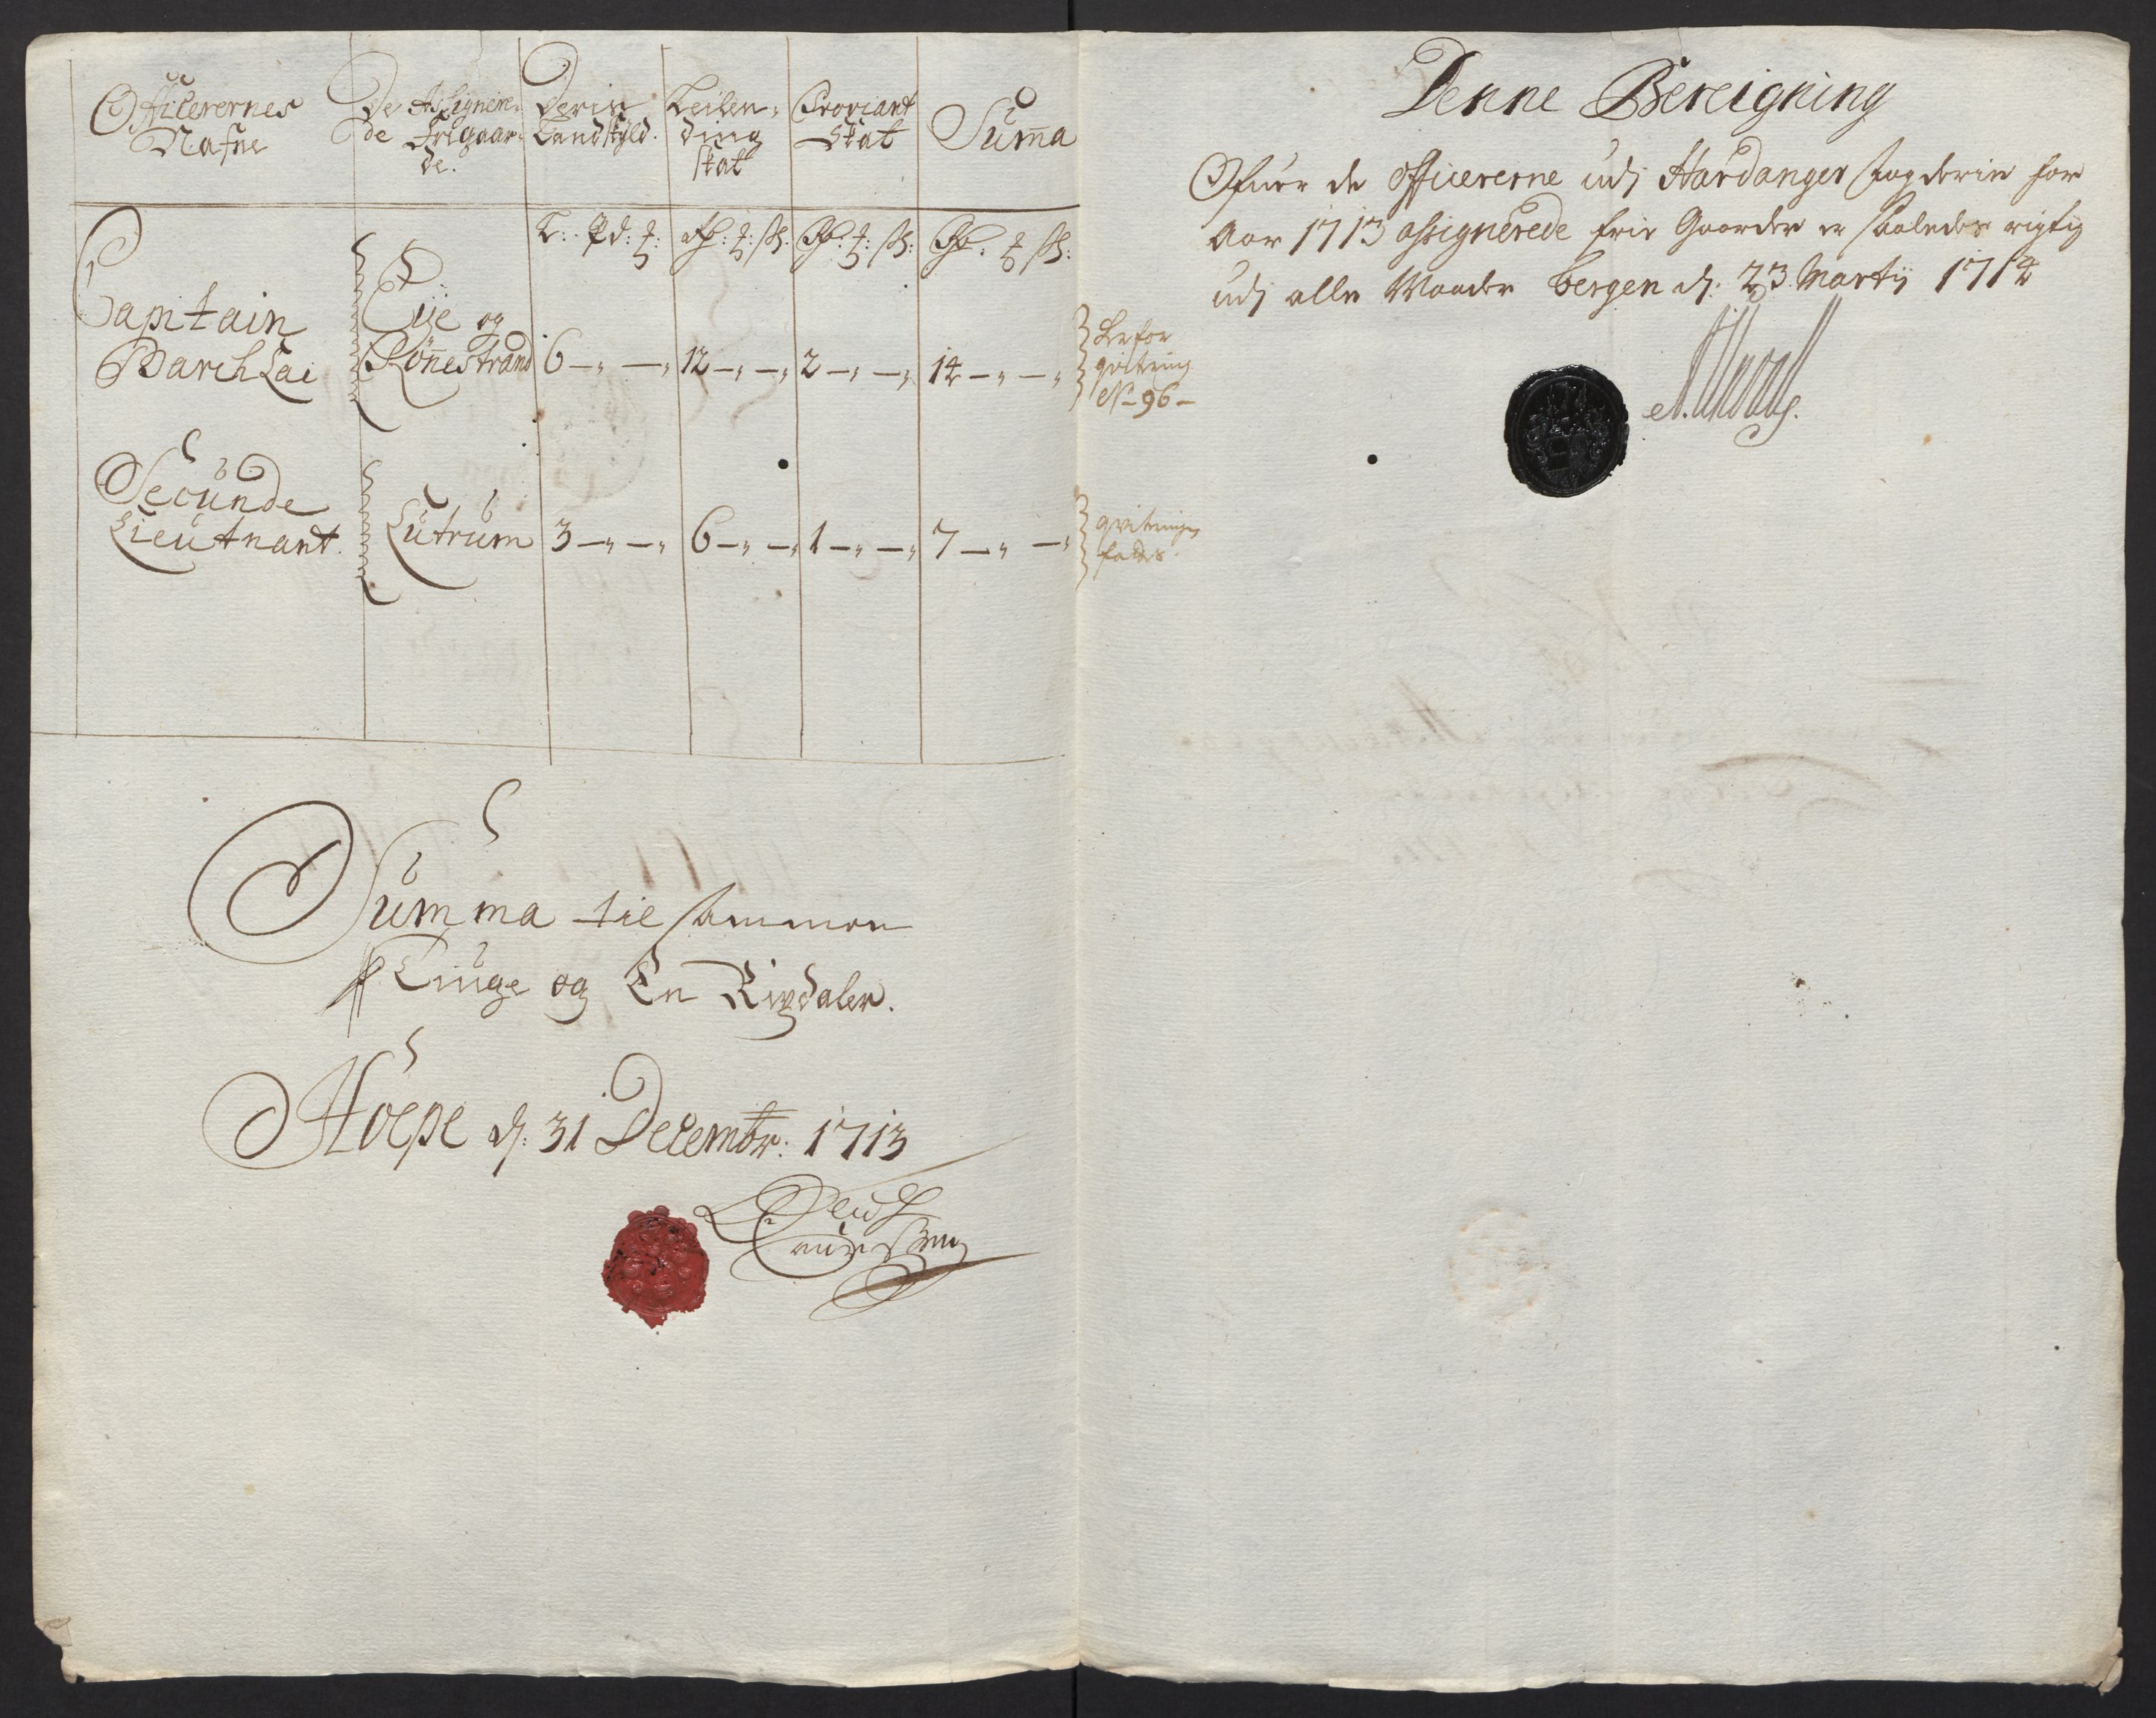 Officerernes
Nafne
De Assignere-
de Frigaar-
de.
Deris
Landskyld.
Leilen-
ding
skat
Proviant
Skat
Suma
L: Pd: ₰: Rdr: ₰: ſſ: Rdr: ₰: ſſ: Rdr: ₰ ſſ:
Capitain
BarchLai
Eije og
Rönestrand 6 – „ – „ 12 – „ – „ 2 – „ – „ 14 – „ – „
Er for
qvitering
No 96 –
Secunde
Lieutnant.
Lutrum 3 – „ – „ 6 – „ – „ 1 – „ – „ 7 – „ – „
qviteringen
fattes.
Summa til sammen
Tiuge og En Rixdaler.
Höepe d: 31 Decembr: 1713
Denne Bereigning
Ofuer de officererne udj Hardanger fogderie for
Aar 1713 assignerede frie Gaarder er saaledes rigtig
udj alle Maader bergen d: 23 Martij 1714